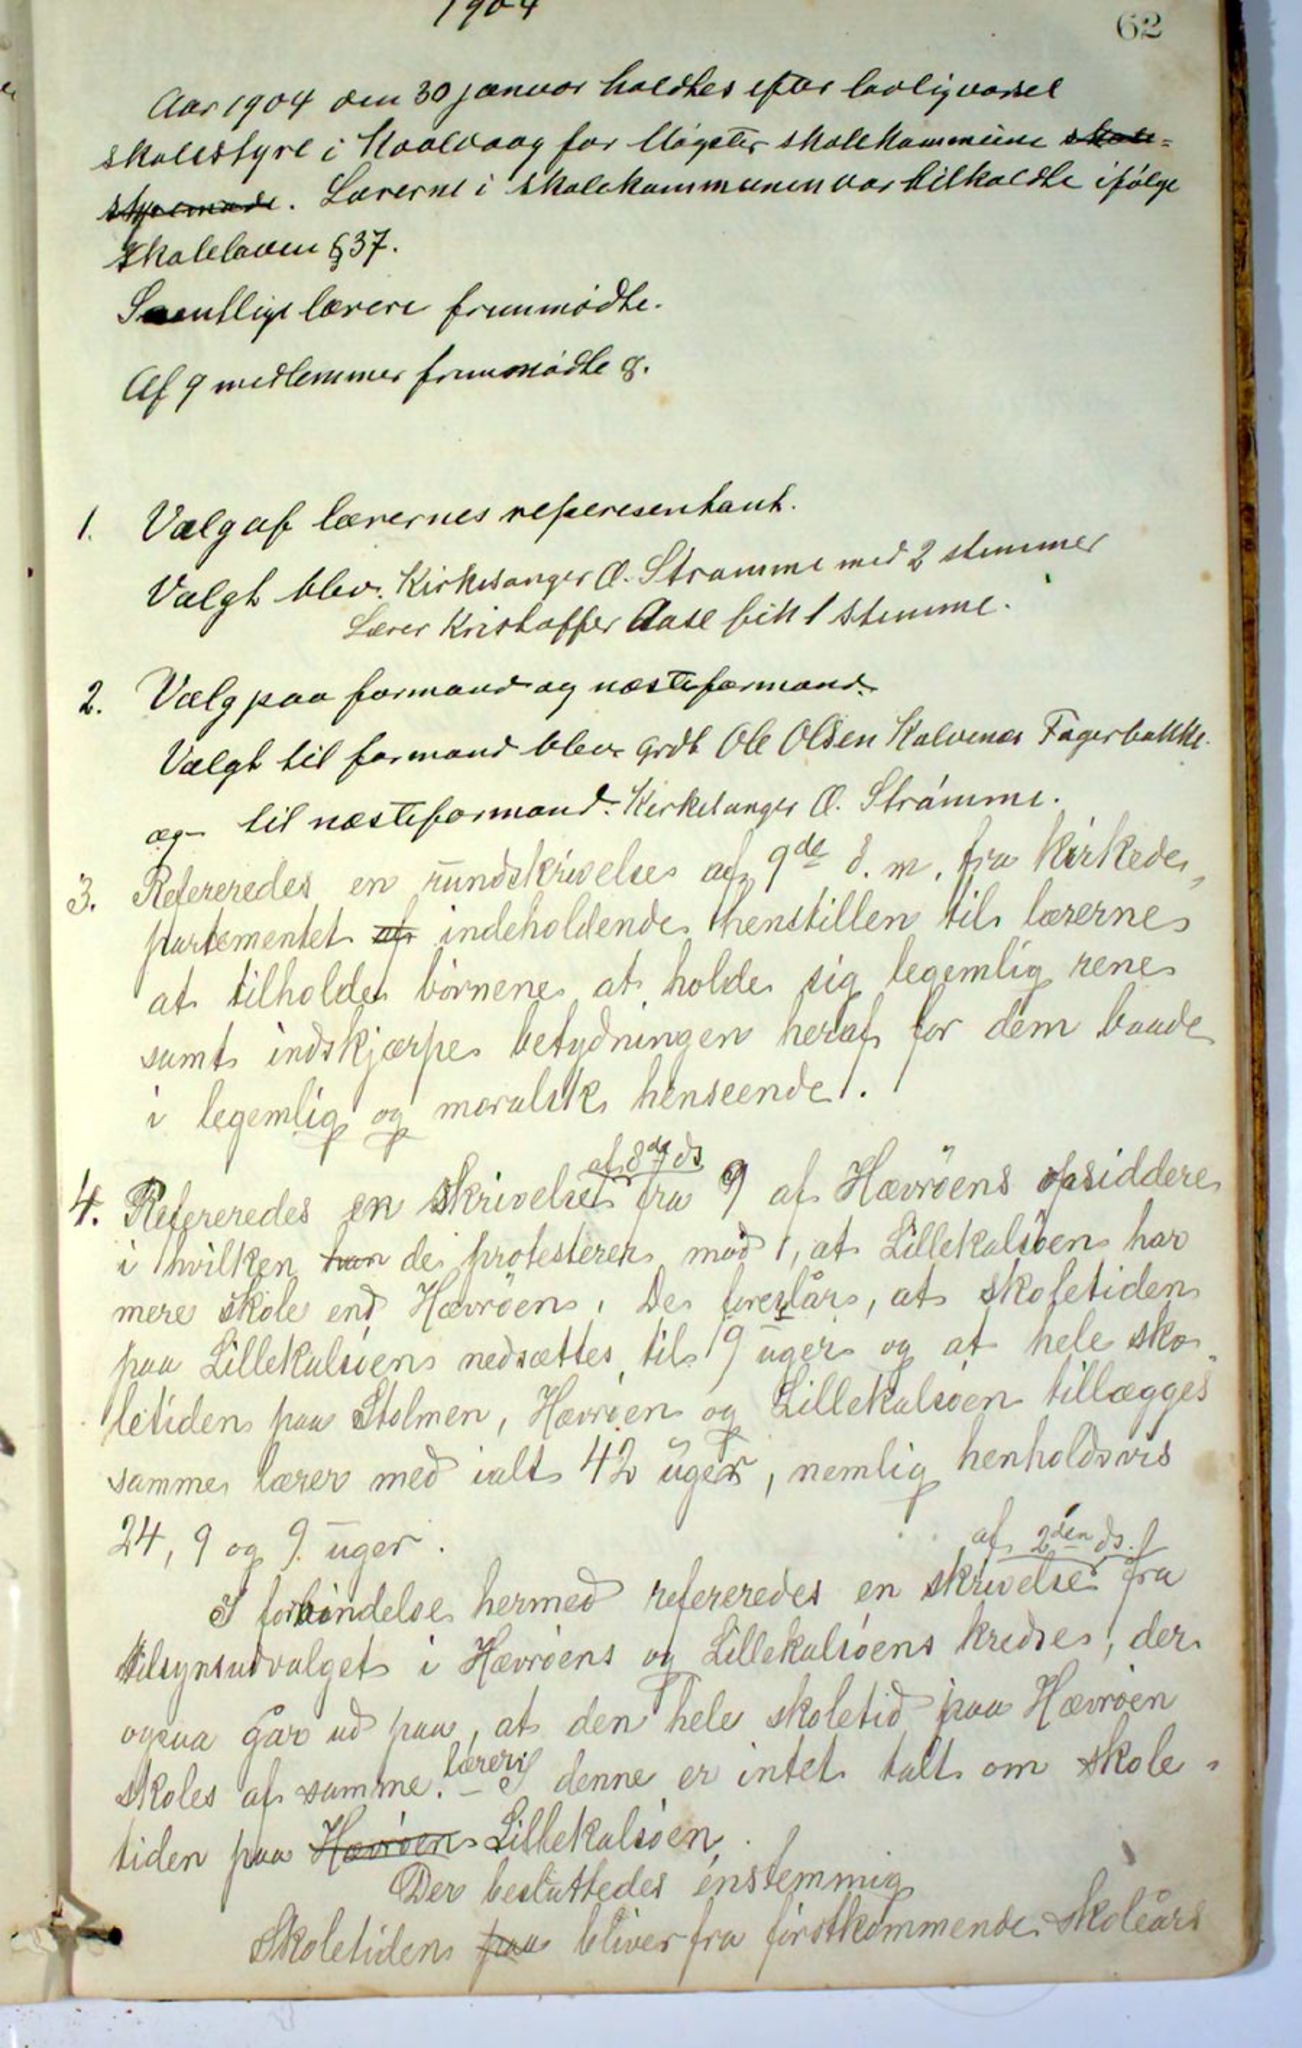 1904
62
Aar 1904 den 30 januar holdtes efter lovlig varsel
skolestyre i Kvalvaag for Møgster skolekommune skole=
styremøde. Lærerne i skolekommunen var tilkaldte ifølge
skoleloven § 37.
Samtlige lærere fremmødte.
Af 9 medlemmer fremmødte 8.
1. Valg af lærernes representant.
Valgt blev. Kirkesanger O. Strømme med 2 stemmer
Lærer Kristoffer Aase fik 1 stemme.
2. Valg paa formand og næstformand.
Valgt til formand blev Grdb Ole Olsen Kalvenes Fagerbakke.
og til næsteformand. Kirkesanger O. Strømme.
3. Refereredes en rundskrivelse af 9de d. m. fra kirkede,
partementet af indeholdende henstillen til lærerne
at tilholde børnene at holde sig legemlig rene
samt indskjærpe betydningen heraf for dem baade
i legemlig og moralsk henseende.
af 8de ds
4. Refereredes en skrivelse fra 9 af Hævrøens opsiddere
i hvilken han de protesterer mod, at Lillekalsøen har
mere skole end Hævrøen. De foreslår, at skoletiden
paa Lillekalsøen nedsættes til 9 uger og at hele sko,
letiden paa Stolmen, Hævrøen og Lillekalsøen tillægges
samme lærer med ialt 42 uger, nemlig henholdsvis
24, 9 og 9 uger.
af 2den ds.
I forbindelse hermed refereredes en skrivelse fra
tilsynsudvalget i Hævrøens og Lillekalsøens kredse, der
ogsaa går ud paa, at den hele skoletid paa Hævrøen
skoles af samme lærer. – I denne er intet talt om skole-
tiden paa Hævrøen Lillekalsøen.
Der besluttedes enstemmig
Skoletiden paa bliver fra førstkommende skoleårs